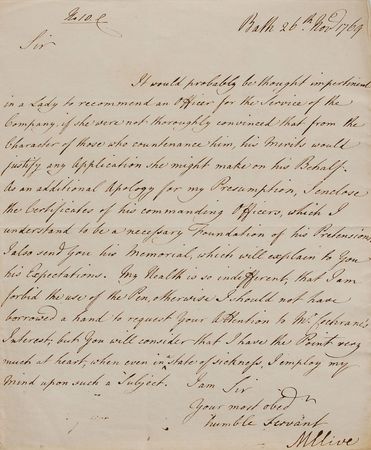 No. 10. C
Bath 26th Novr. 1769
Sir
It would probably be thought impertinent
in a Lady to recommend an Officer for the Service of the
Company, if she were not thoroughly convinced that from the
Character of those who countenance him, his Merits would
justify any Application she might make on his Behalf.
As an additional Apology for my Presumption, I enclose
the Certificates of his commanding Officers, which I
understand to be a necessary Foundation of his Pretensions
I also send you his Memorial, which will explain to You
his Expectations. My Health is so indifferent, that I am
forbid the use of the Pen, otherwise I should not have
borrowed a hand to request Your Attention to Mr. Cochrane's
Interest; but You will consider that I have the Point very
much at heart, when even in State of sickness, I employ my
mind upon such a Subject. I am Sir
Your most obedt.
humble Servant
MClive